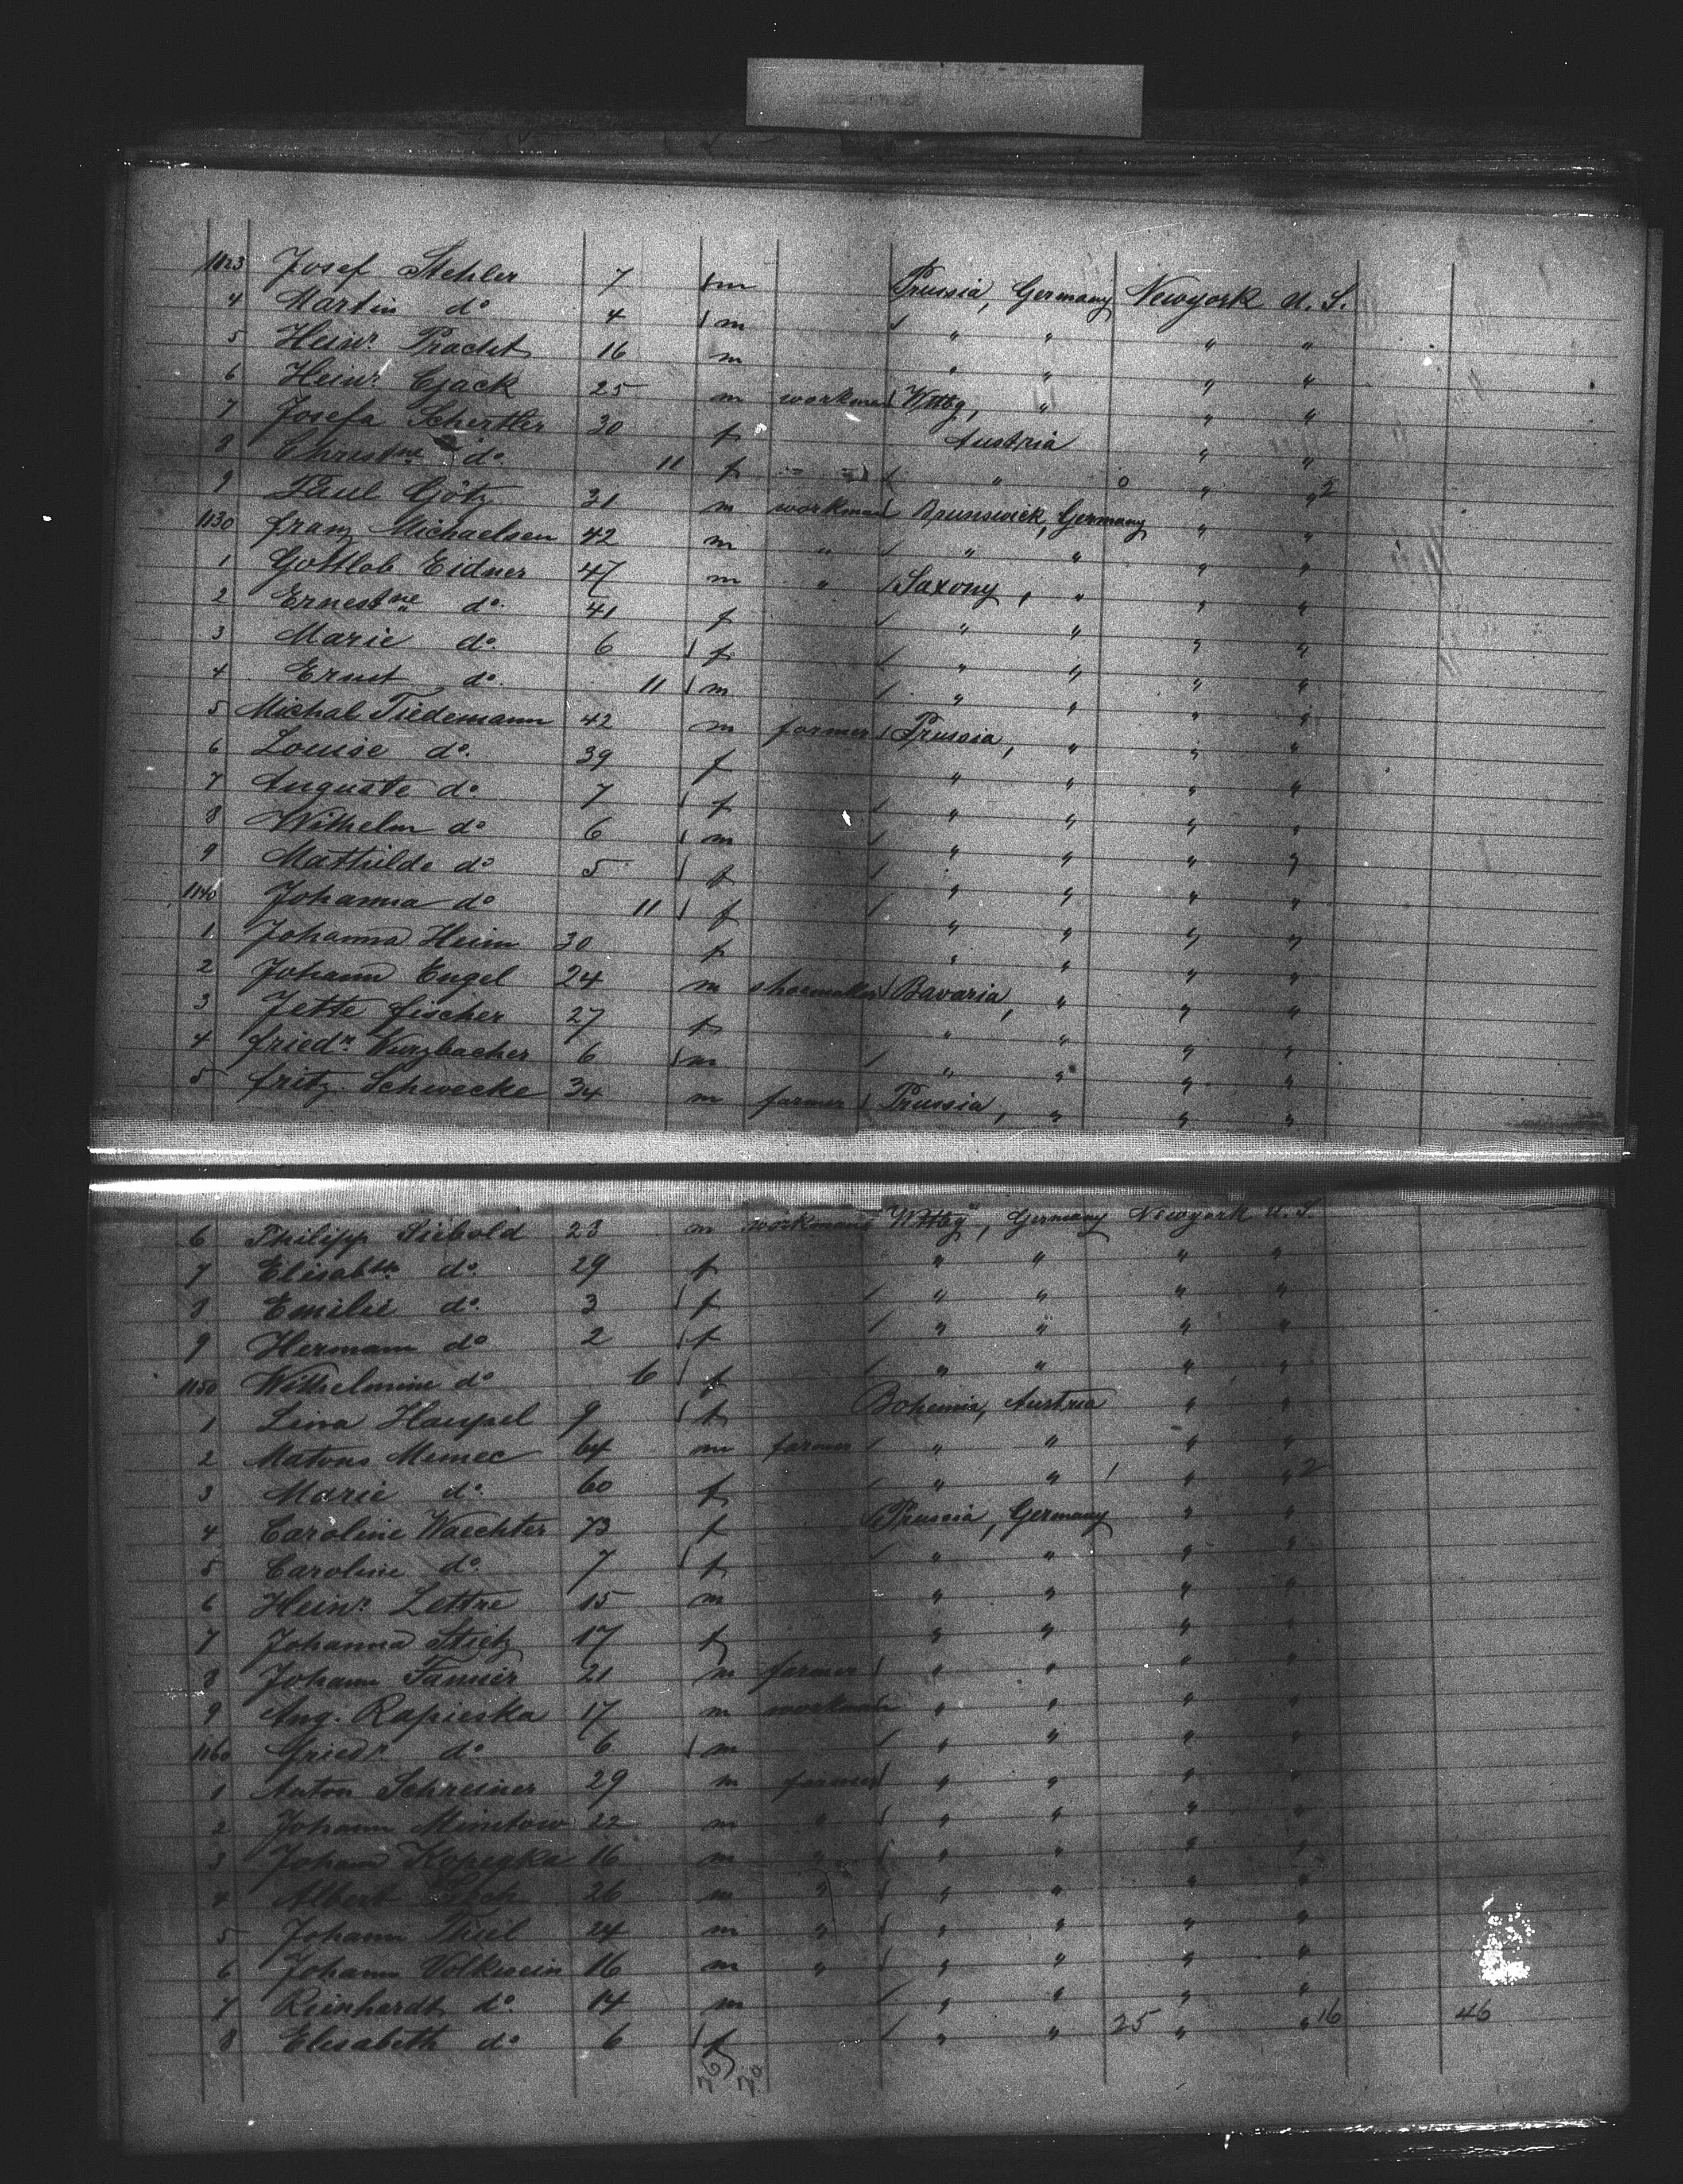 1123 Josef Stehler 7 m Prussia, Germany Newyork U.S.
4 Martin do 4 m " " " "
5 Heinr. Pracht 16 m " " " "
6 Heinr. Gjack 25 m workman Wttbg, " " "
7 Josefa Schertler 30 f Austria " "
8 Christne do. 11 f " 0 " " 2
9 Paul Götz 31 m workman Brunswick, Germany " "
1130 Franz Michaelsen 42 m " " " " "
1 Gottlob Eidner 47 m " Saxony, " " "
2 Ernestne do. 41 f " " " "
3 Marie do. 6 f " " " "
4 Ernst do. 11 m " " " "
5 Michal Tiedemann 42 m farmer Prussia, " " "
6 Louise do. 39 f " " " "
7 Auguste do 7 f " " " "
8 Wilhelm do 6 m " " " "
9 Mathilde do 5 f " " " "
1140 Johanna do 11 f " " " "
1 Johanna Heim 30 f " " " "
2 Johann Engel 24 m shoemaker Bavaria, " " "
3 Jette Fischer 27 f " " " "
4 Friedr. Wurzbacher 6 m " " " "
5 Fritz Schwecke 34 m farmer Prussia, " " "
6 Philipp Siebold 23 m workman Wttbg, Germany Newyork U.S.
7 Elisabth do. 29 f " " " "
8 Emilie do. 3 f " " " "
9 Hermann do 2 f " " " "
1150 Wilhelmine do 6 f " " " "
1 Lina Haupel 9 f Bohemia, Austria " "
2 Matous Memec 64 m farmer " " " "
3 Marie do. 60 f " " 1 " " 2
4 Caroline Waechter 73 f Prussia, Germany " "
5 Caroline do. 7 f " " " "
6 Heinr. Lettre 15 m " " " "
7 Johanna Stietz 17 f " " " "
8 Johann Tannier 21 m farmer " " " "
9 Aug. Rapieska 17 m workman " " " "
1160 Friedr. do. 6 m " " " "
1 Anton Schreiner 29 m farmer " " " "
2 Johann Minitow 22 m " " " " "
3 Johann 16 m " " " " "
4 Albert 26 m " " " " "
5 Johann Thiel 24 m " " " " "
6 Johann Volkwein 16 m " " " " "
7 Reinhardt do. 14 m " " " "
8 Elisabeth do 6 f " " 25 " " 16 46